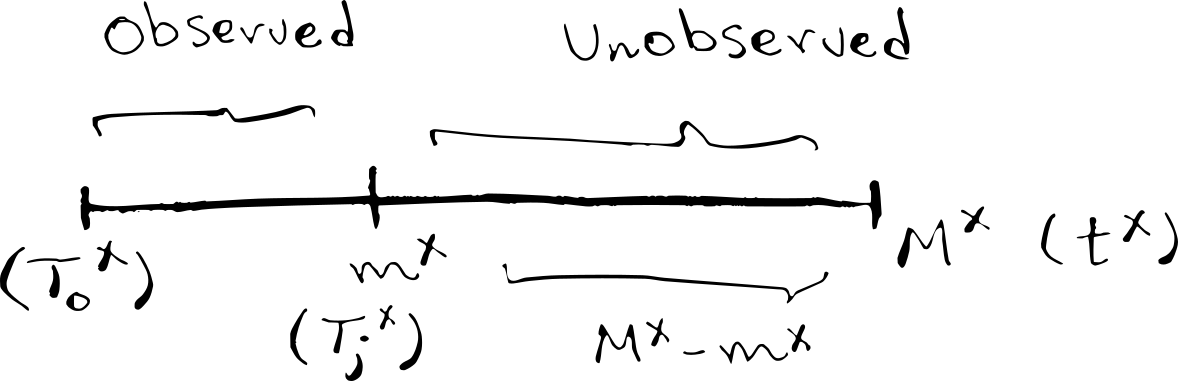 Observed Unobserved
(T₀ˣ) mˣ Mˣ (tˣ)
(Tⱼˣ) Mˣ - mˣ